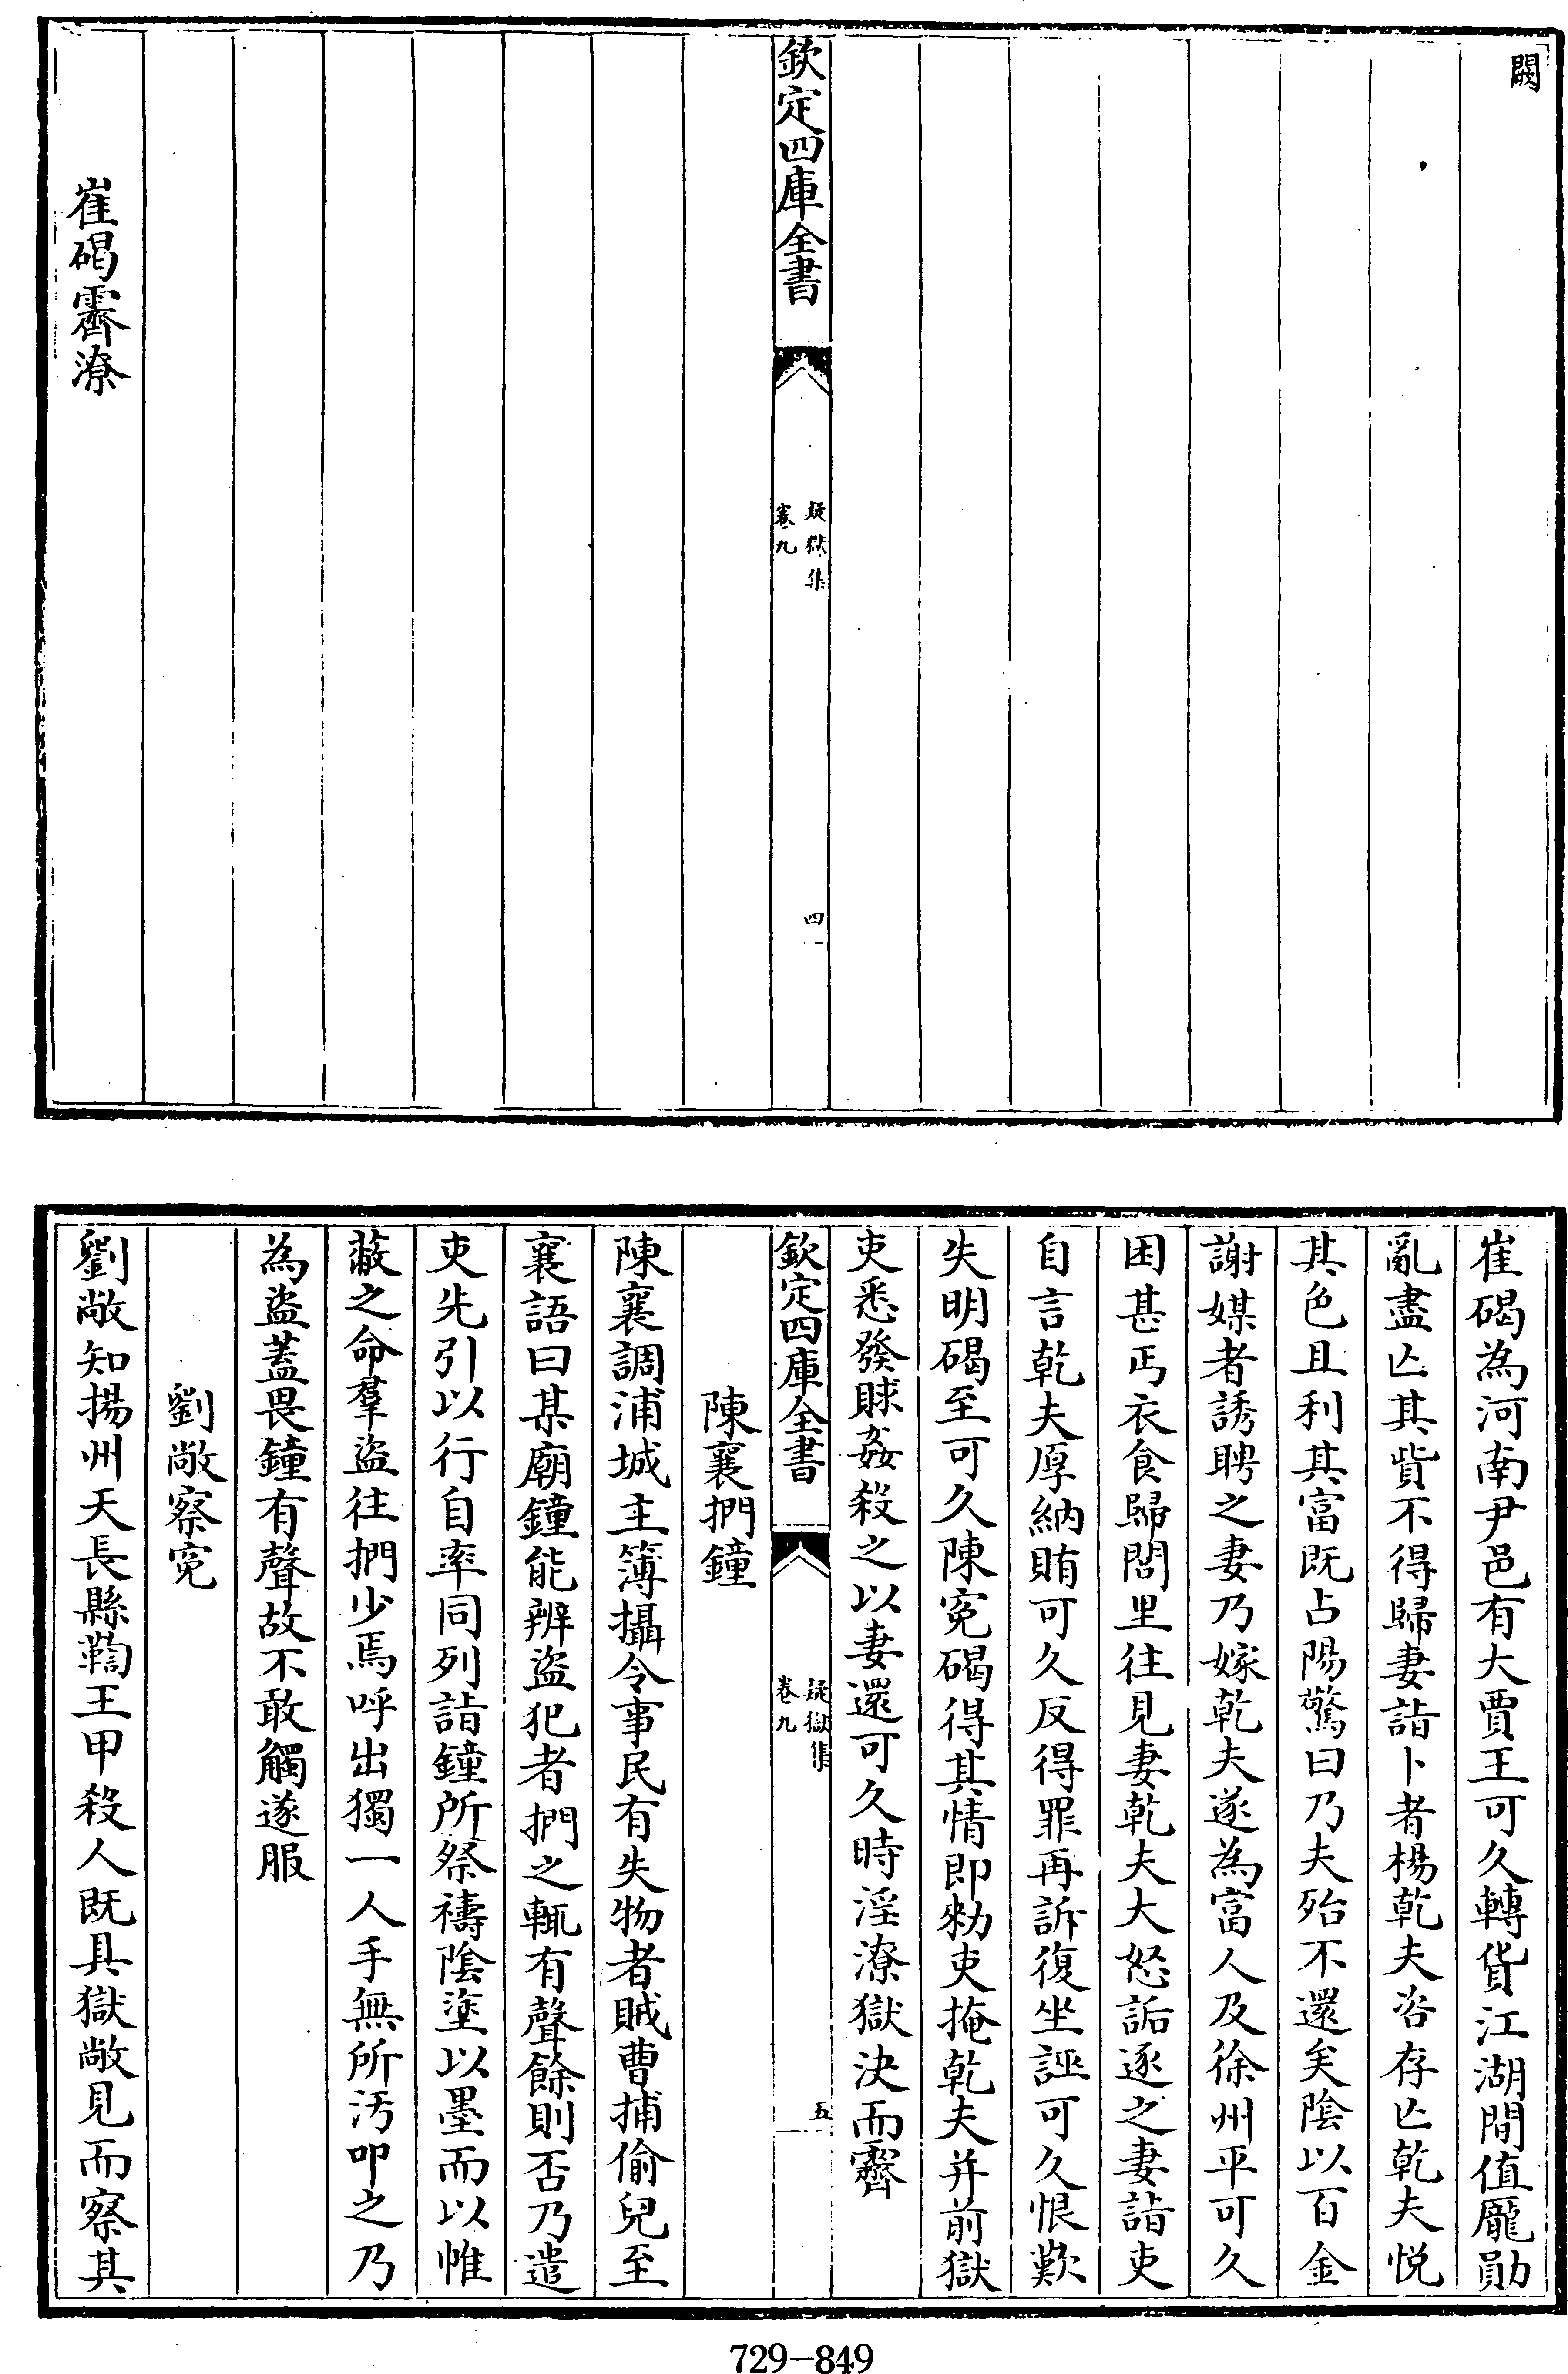 闕
欽定四庫全書
疑獄集
卷九
四
崔碣霽潦
崔碣為河南尹邑有大賈王可久轉貨江湖間值龎勛
亂盡亡其貲不得歸妻詣卜者楊乾夫咨存亡乾夫悅
其色且利其富既占陽驚曰乃夫殆不還矣陰以百金
謝媒者誘聘之妻乃嫁乾夫遂為富人及徐州平可久
困甚丐衣食歸閭里往見妻乾夫大怒詬逐之妻詣吏
自言乾夫厚納賄可久反得罪再訴復坐誣可久恨歎
失明碣至可久陳寃碣得其情即勑吏掩乾夫并前獄
吏悉發賕姦殺之以妻還可久時淫潦獄決而霽
欽定四庫全書
疑獄集
卷九
五
陳襄捫鐘
陳襄調浦城主簿攝令事民有失物者賊曹捕偷兒至
襄語曰某廟鐘能辨盜犯者捫之輒有聲餘則否乃遣
吏先引以行自率同列詣鐘所祭禱陰塗以墨而以帷
蔽之命羣盜往捫少焉呼出獨一人手無所污叩之乃
為盜蓋畏鐘有聲故不敢觸遂服
劉敞察寃
劉敞知揚州天長縣鞫王甲殺人既具獄敞見而察其
729-849